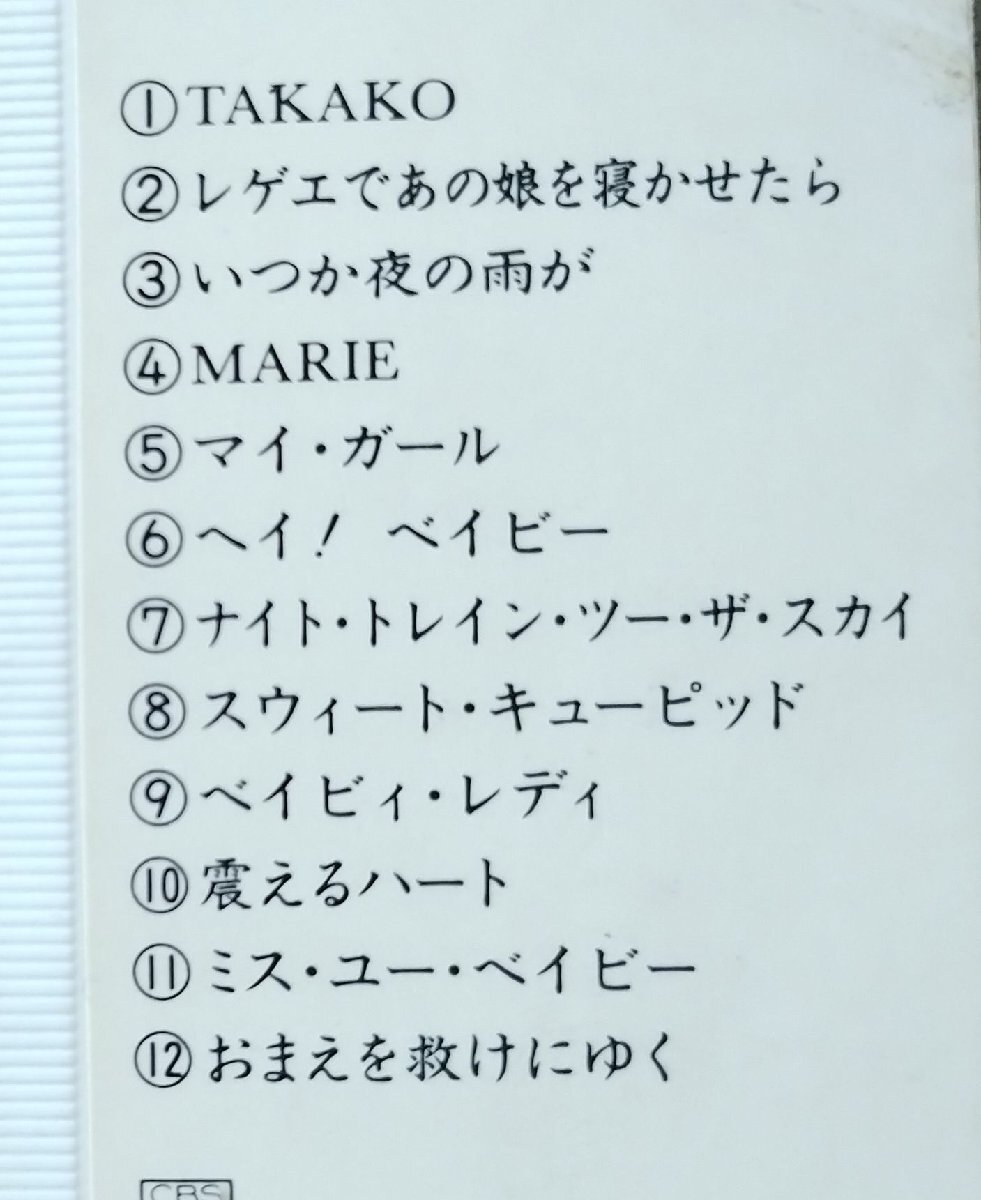 ①TAKAKO
②レゲエであの娘を寝かせたら
③いつか夜の雨が
④MARIE
⑤マイ・ガール
⑥ヘイ！ ベイビー
⑦ナイト・トレイン・ツー・ザ・スカイ
⑧スウィート・キューピッド
⑨ベイビィ・レディ
⑩震えるハート
⑪ミス・ユー・ベイビー
⑫おまえを救けにゆく
CBS